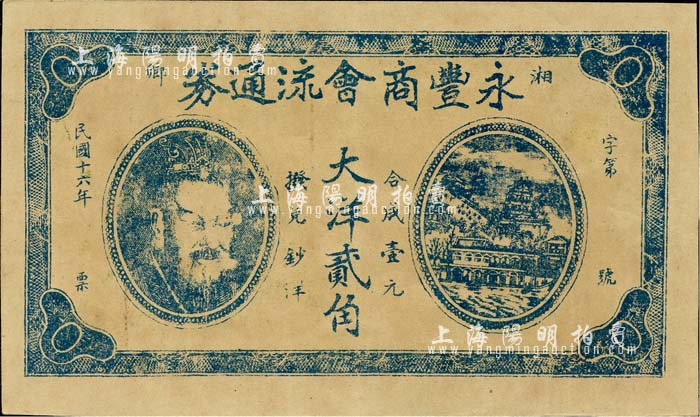 湘
永豐商會流通券
字第
號
合成壹元
大洋貳角
撥兌鈔洋
民國十六年
票
上海陽明拍賣
www.yangmingauction.com
上海陽明拍賣
www.yangmingauction.com
上海陽明拍賣
www.yangmingauction.com